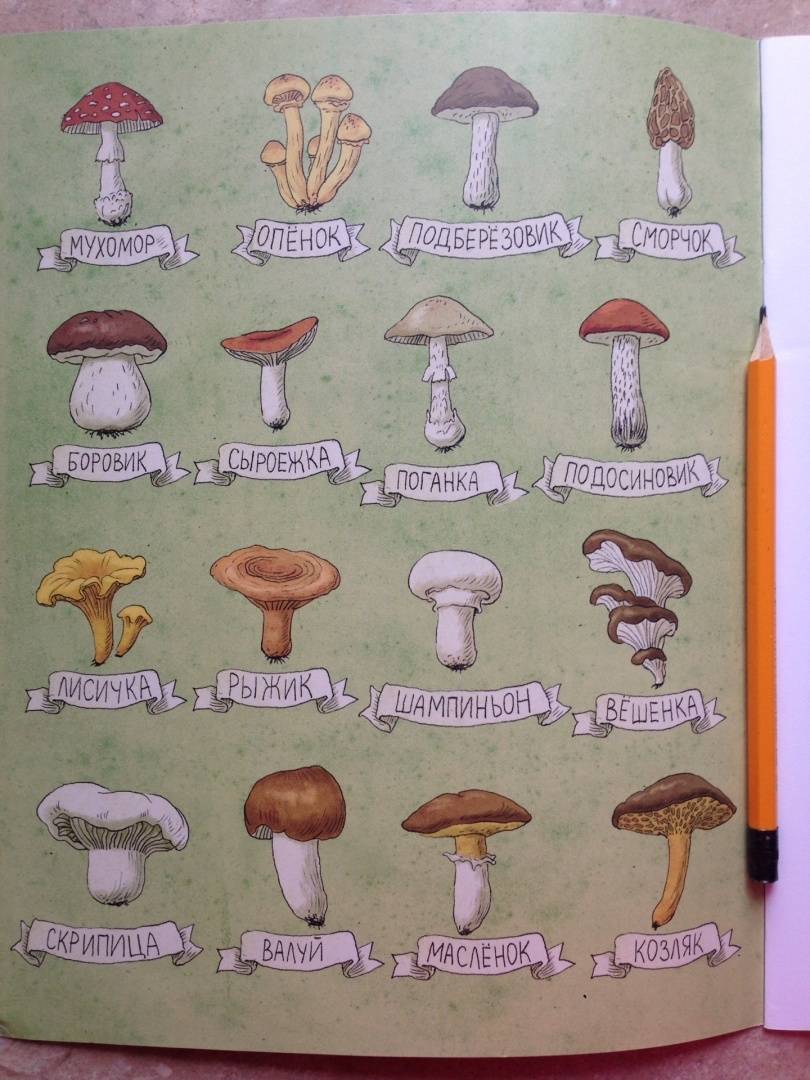 МУХОМОР
ОПЁНОК
ПОДБЕРЁЗОВИК
СМОРЧОК
БОРОВИК
СЫРОЕЖКА
ПОГАНКА
ПОДОСИНОВИК
ЛИСИЧКА
РЫЖИК
ШАМПИНЬОН
ВЁШЕНКА
СКРИПИЦА
ВАЛУЙ
МАСЛЁНОК
КОЗЛЯК